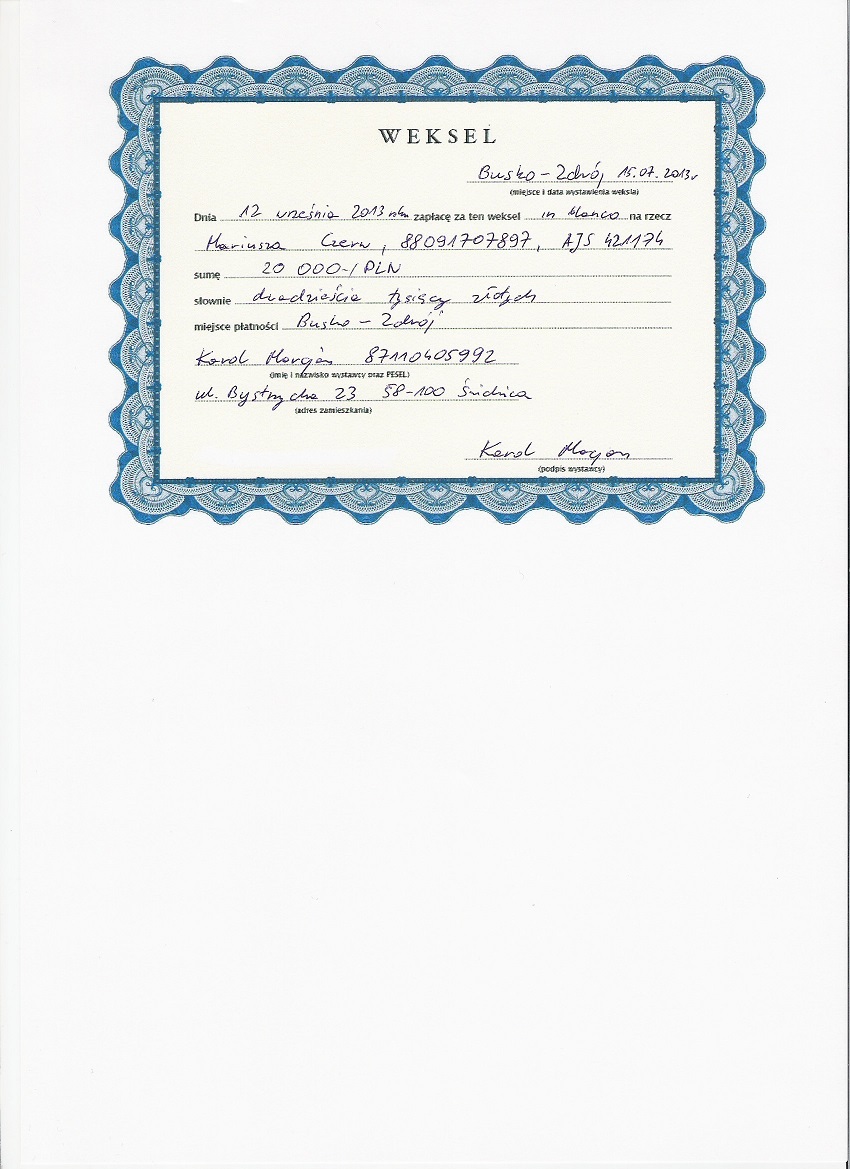 WEKSEL
Busko-Zdrój 15.07.2013r
(miejsce i data wystawienia weksla)
Dnia 12 września 2013 roku zapłacę za ten weksel in blanco na rzecz
Mariusza Czern, 88091707897, AJS 421174
sumę 20 000-/PLN
słownie dwadzieścia tysięcy złotych
miejsce płatności Busko-Zdrój
Karol 87110405992
(imię i nazwisko wystawcy oraz PESEL)
ul. Bystrzycka 23 58-100 Świdnica
(adres zamieszkania)
Karol
(podpis wystawcy)